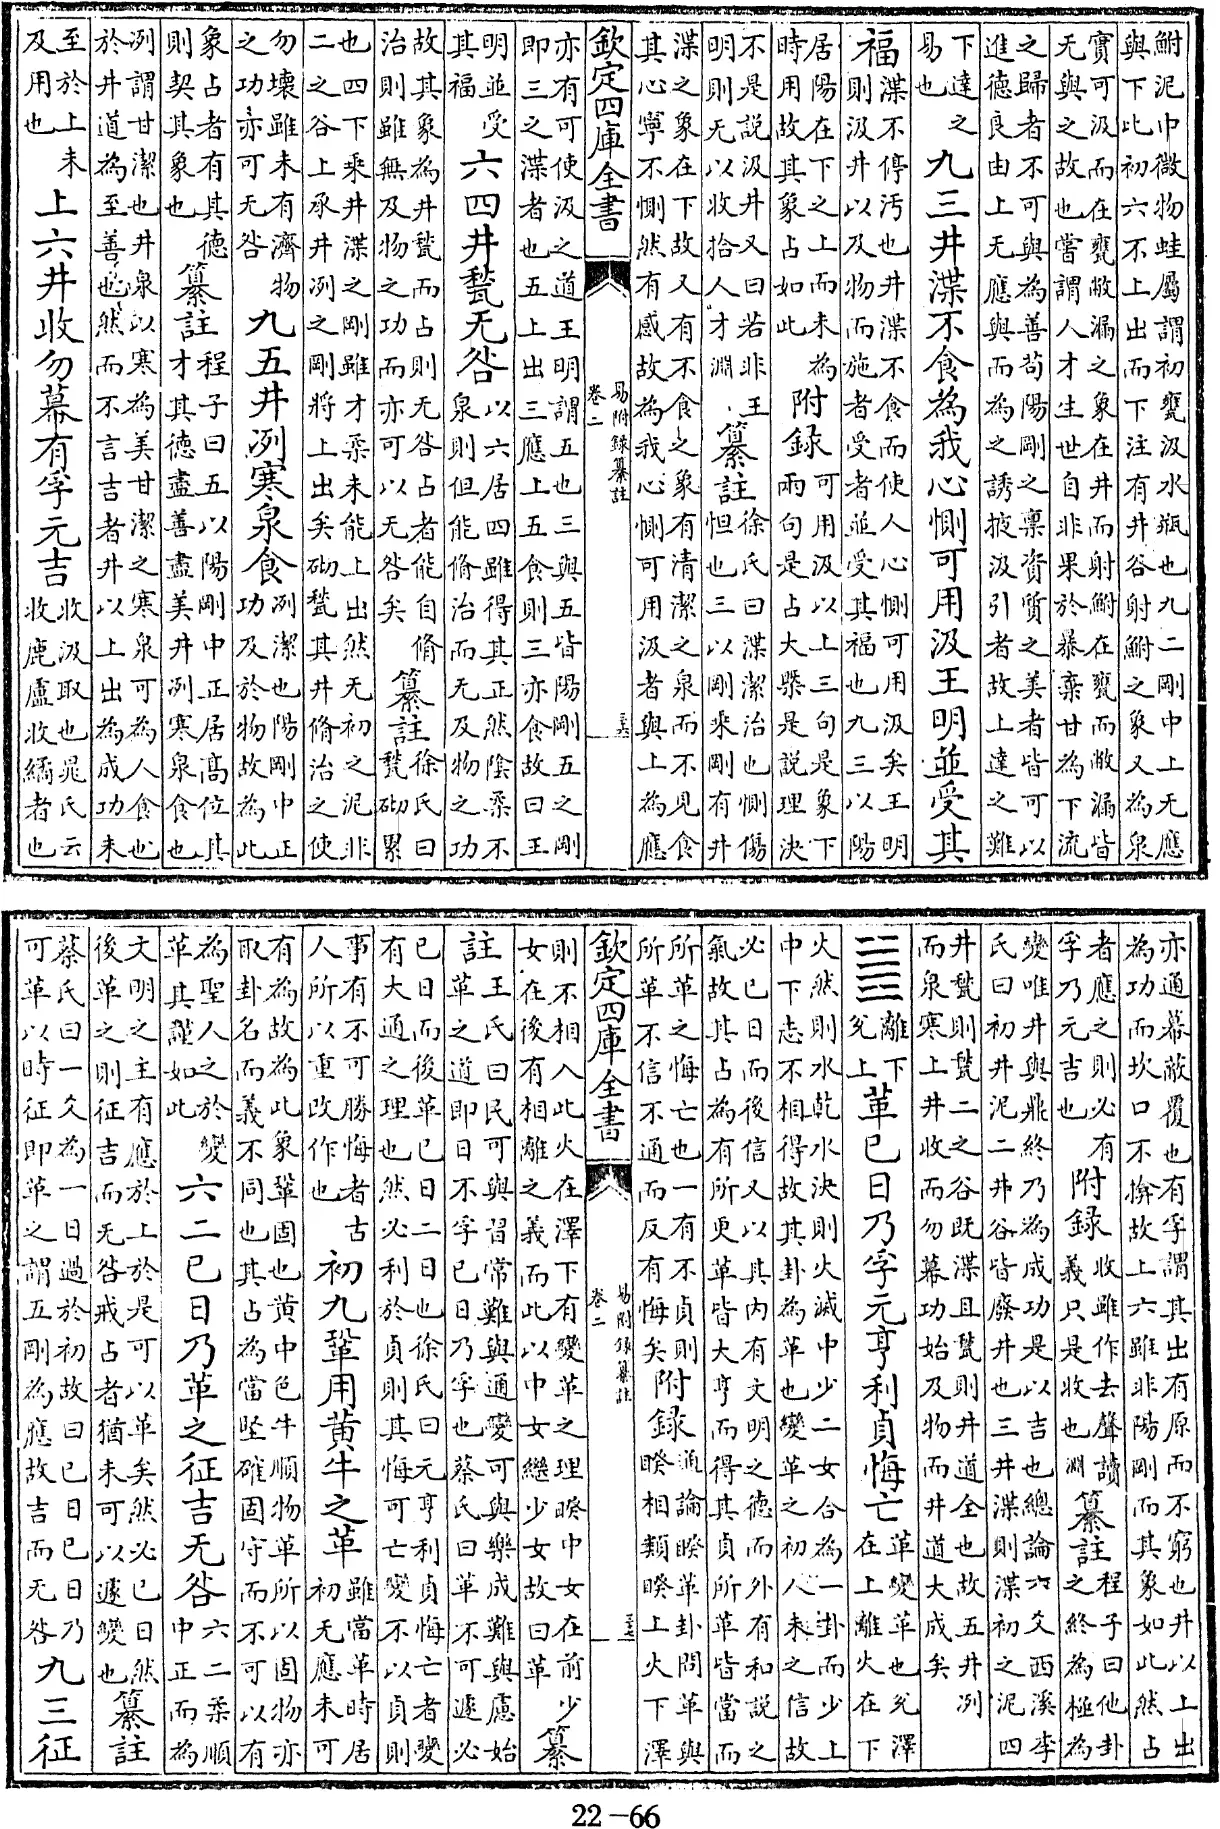 鮒泥中微物蛙屬謂初甕汲水瓶也九二剛中上无應
與下比初六不上出而下注有井谷射鮒之象又為泉
實可汲而在甕敝漏之象在井而射鮒在甕而敝漏皆
无與之故也嘗謂人才生世自非果於暴棄甘為下流
之歸者不可與為善苟陽剛之禀資質之美者皆可以
進德良由上无應與而為之誘掖汲引者故上達之難
下達之
易也
九三井渫不食為我心惻可用汲王明並受其
福
渫不停汚也井渫不食而使人心惻可用汲矣王明
則汲井以及物而施者受者並受其福也九三以陽
居陽在下之上而未為
時用故其象占如此
附録
可用汲以上三句是象下
兩句是占大槩是說理決
不是說汲井又曰若非王
明則无以收拾人才淵
纂註
徐氏曰渫潔治也惻傷
怛也三以剛乗剛有井
渫之象在下故又有不食之象有清潔之泉而不見食
其心寧不惻然有感故為我心惻可用汲者與上為應
欽定四庫全書
易附録纂註
卷二
亦有可使汲之道王明謂五也三與五皆陽剛五之剛
即三之渫者也五上出三應上五食則三亦食故曰王
明並受
其福
六四井甃无咎
以六居四雖得其正然陰柔不
泉則但能脩治而无及物之功
故其象為井甃而占則无咎占者能自脩
治則雖無及物之功而亦可以无咎矣
纂註
徐氏曰
甃砌累
也四下乗井渫之剛雖才柔未能上出然无初之泥非
二之谷上承井冽之剛將上出矣砌甃其井脩治之使
勿壞雖未有濟物
之功亦可无咎
九五井冽寒泉食
冽潔也陽剛中正
功及於物故為此
象占者有其德
則契其象也
纂註
程子曰五以陽剛中正居髙位其
才其徳盡善盡美井冽寒泉食也
冽謂甘潔也井泉以寒為美甘潔之寒泉可為人食也
於井道為至善也然而不言吉者井以上出為成功未
至於上未
及用也
上六井收勿幕有孚元吉
收汲取也晁氏云
收鹿盧收繘者也
亦通幕蔽覆也有孚謂其出有原而不窮也井以上出
為功而坎口不揜故上六雖非陽剛而其象如此然占
者應之則必有
孚乃元吉也
附録
收雖作去聲讀
義只是收也淵
纂註
程子曰他卦
之終為極為
變唯井與鼎終乃為成功是以吉也總論六爻西溪李
氏曰初井泥二井谷皆廢井也三井渫則渫初之泥四
井甃則甃二之谷既渫且甃則井道全也故五井冽
而泉寒上井收而勿幕功始及物而井道大成矣
離下
兌上
革已日乃孚元亨利貞悔亡
革變革也兌澤
在上離火在下
火然則水乾水決則火滅中少二女合為一卦而少上
中下志不相得故其卦為革也變革之初人未之信故
必已日而後信又以其內有文明之德而外有和説之
氣故其占為有所更革皆大亨而得其貞所革皆當而
所革之悔亡也一有不貞則
所革不信不通而反有悔矣
附録
通論睽革卦問革與
睽相類睽上火下澤
欽定四庫全書
易附録纂註
卷二
則不相入此火在澤下有變革之理睽中女在前少
女在後有相離之義而此以中女繼少女故曰革
纂
註
王氏曰民可與習常難與通變可與樂成難與慮始
革之道即日不孚已日乃孚也蔡氏曰革不可遽必
已日而後革已日二日也徐氏曰元亨利貞悔亡者變
有大通之理也然必利於貞則其悔可亡變不以貞則
事有不可勝悔者古
人所以重改作也
初九鞏用黄牛之革
雖當革時居
初无應未可
有為故為此象鞏固也黄中色牛順物革所以固物亦
取卦名而義不同也其占為當堅確固守而不可以有
為聖人之於變
革其謹如此
六二已日乃革之征吉无咎
六二柔順
中正而為
文明之主有應於上於是可以革矣然必已日然
後革之則征吉而无咎戒占者猶未可以遽變也
纂註
蔡氏曰一爻為一日過於初故曰已日已日乃
可革以時征即革之謂五剛為應故吉而无咎
九三征
22－66